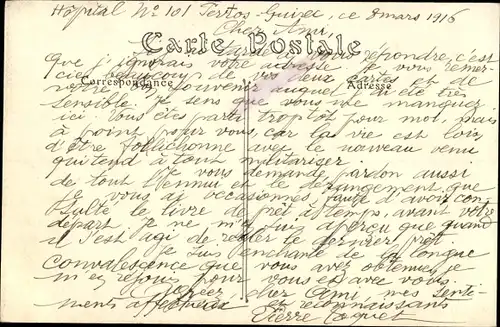 Hôpital N° 101 Tertos Guise, ce 8 mars 1916
Cher Ami,
Carte Postale
répondre, c'est
que j'ignorais votre adresse. Je vous remer-
cie beaucoup de vos deux cartes et de
Correspondance Adresse
votre bon souvenir auquel j'ai été très
sensible. Je sens que vous me manquez
ici. Vous êtes parti trop tôt pour moi, mais
à point pour vous, car la vie est loin
d'être folichonne avec le nouveau venu
qui tend à tout militariser.
Je vous demande pardon aussi
de tout l'ennui et le dérangement que
je vous ai occasionnés faute d'avoir con
sulté le livre de prêt à temps, avant votre
départ. Je ne m'en suis aperçu que quand
il s'est agi de régler le dernier prêt.
Je suis enchanté de la longue
convalescence que vous avez obtenue, je
m'en réjouis pour vous et avec vous.
cher Ami, mes senti-
ments affectueux et reconnaissants
Pierre